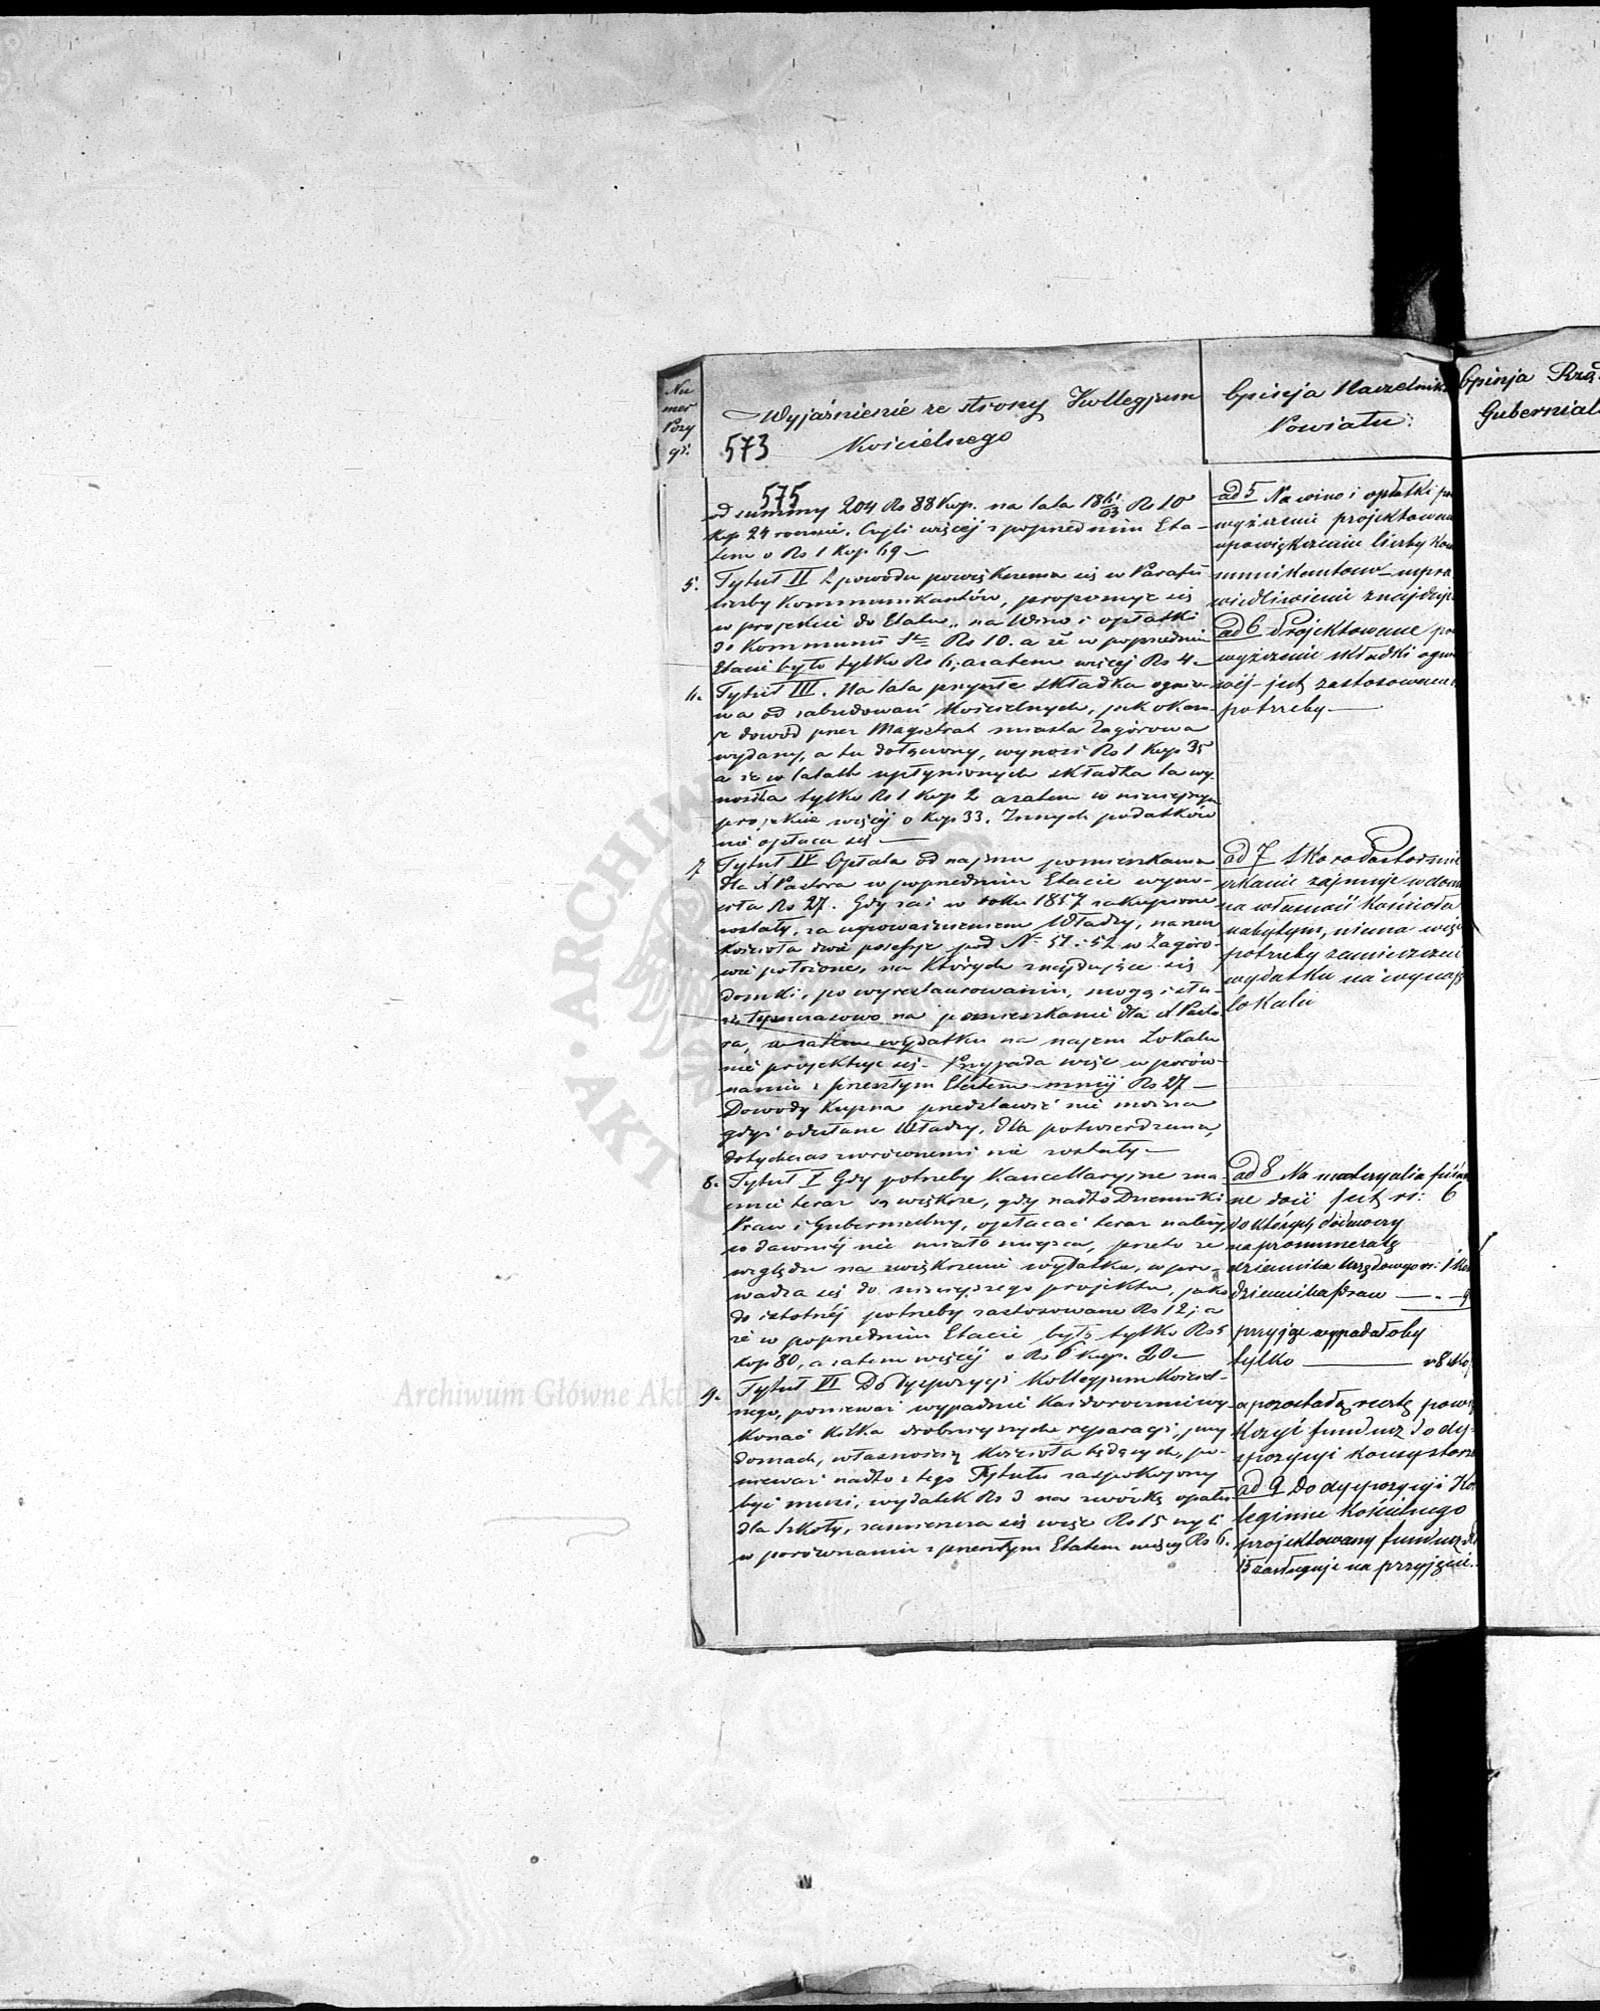 Nu
mer
Pozy
cji
Wyjaśnienie ze strony Kollegjum
Kościelnego
573
575
od summy 204 Rs 88 Kop. na lata 18 61/63 Rs 10
Kop 24 rocznie. Czyli więcej z poprzednim Eta-
tem o Rs 1 Kop 69 —
5. Tytuł II Z powodu powiększenia się w Parafii
liczby Kommunikantów, proponuje się
w projekcie do Etatu „na Wino i opłatki
do Kommunii Rs 10. a że w poprzednim
Etacie było tylko Rs 6, azatem więcej Rs 4 —
6. Tytuł III. Na lata przyszłe składka ognio-
wa od zabudowań Kościelnych, jak okazu-
je dowód przez Magistrat miasta Zagórowa
wydany, a tu dołączony, wynosi Rs 1 Kop 35
a że w latach upłynionych składka ta wy-
nosiła tylko Rs 1 Kop 2 azatem w niniejszym
projekcie więcej o Kop 33. Innych podatków
nie opłaca się —
7 Tytuł IV Opłata od najmu pomieszkania
dla X Pastora w poprzednim Etacie wyno-
siła Rs 27. Gdy zaś w roku 1857 zakupione
zostały, za upoważnieniem Władzy, na rzecz
Kościoła dwie posesye pod No 51 i 52 w Zagóro-
wie położone, na których znajdujące się
domki, po wyrestaurowaniu, mogą słu-
żyć tymczasowo na pomieszkanie dla X Pasto-
ra, a zatem wydatku na najem Lokalu
nie projektuje się. Przypada więc w porów-
naniu z przeszłym Etatem mniej Rs 27 —
Dowody Kupna przedstawić nie można
gdyż odesłane Władzy, dla potwierdzenia,
dotychczas zwróconemi nie zostały —
8. Tytuł V Gdy potrzeby Kancellaryjne zna-
cznie teraz są większe, gdy nadto Dzienniki
Praw i Gubernialny, opłacać teraz należy,
co dawniej nie miało miejsca, przeto ze
względu na zwiększenie wydatku, wpro-
wadza się do niniejszego projektu, jako
do istotnej potrzeby zastosowane Rs 12; a
że w poprzednim Etacie było tylko Rs 5
Kop 80, a zatem więcej o Rs 6 Kop. 20 —
9. Tytuł VI Do dyspozycyi Kollegjum Kościel-
nego, ponieważ wypadnie Każdorocznie wy-
konać kilka drobniejszych reparacji, przy
domach, własnością Kościoła będących, po-
nieważ nadto z tego Tytułu zaspokojony
być musi, wydatek Rs 3 na zwózkę opału
dla Szkoły, zamieszcza się więc Rs 15 czyli
w porównaniu z przeszłym Etatem więcej Rs 6.
Opinja Naczelnika
Powiatu:
ad 5 Na wino i opłatki po
wyższenie projektowane
upowiększenie liczby Kom
munikantów — uspra
wiedliwienie znajduje
ad 6 Projektowane po
wyższenie składki ognio
wej — jest zastosowanem
potrzeby —
ad 7 Skoro Pastor mie
szkanie zajmuje w domu
na własność Kościoła
nabytym, niema więc
potrzeby zamieszczenia
wydatku na wynajęcie
lokalu
ad 8 Na materyalia piśmien
ne dość jest rs: 6
do których doliczywszy
na prenumeratę
dziennika Urzędowego rs: 1
dziennika praw —
przyjąć wypadałoby
tylko — rs 8
a pozostałą resztę powię
kszyć fundusz do dy-
spozycyi Konsystorza
ad 9 Do dyspozycyi Ko
legium Kościelnego
projektowany fundusz Rs
15 zasługuje na przyjęcie.
Opinja Rzą
Gubernial
Archiwum Główne Akt Dawnych